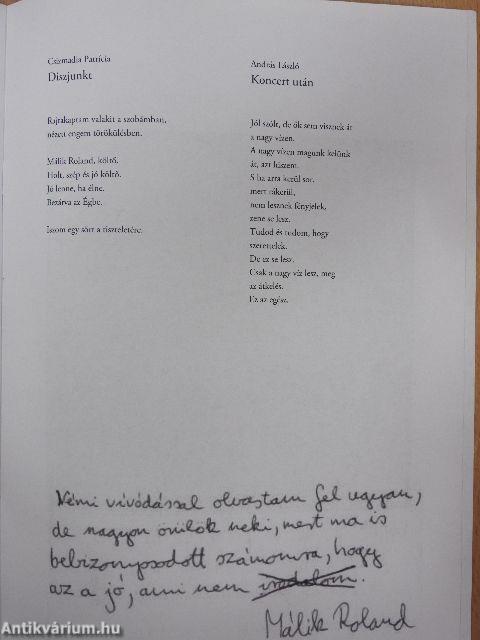 Csizmadia Patrícia
Diszjunkt
Rajtakaptam valakit a szobámban,
nézett engem törökülésben.
Málik Roland, költő.
Holt, szép és jó költő.
Jó lenne, ha élne.
Bezárva az Égbe.
Iszom egy sört a tiszteletére.
András László
Koncert után
Jól szólt, de ők sem visznek át
a nagy vízen.
A nagy vízen magunk kelünk
át, azt hiszem.
S ha arra kerül sor,
mert rákerül,
nem lesznek fényjelek,
zene se lesz.
Tudod és tudom, hogy
szerettelek.
De ez se lesz.
Csak a nagy víz lesz, meg
az átkelés.
Ez az egész.
Némi vívódással olvastam fel ugyan,
de nagyon örülök neki, mert ma is
bebizonyosodott számomra, hogy
az a jó, ami nem irodalom.
Málik Roland
Antikvárium.hu